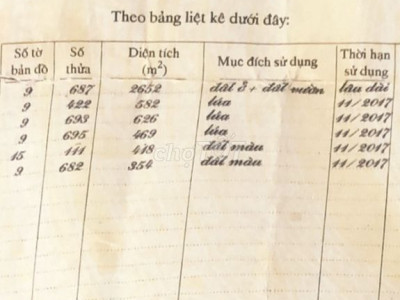 Theo bảng liệt kê dưới đây:
Số tờ bản đồ | Số thửa | Diện tích (m²) | Mục đích sử dụng | Thời hạn sử dụng
9 | 687 | 2652 | đất ở + đất vườn | lâu dài
9 | 422 | 582 | lúa | 11/2017
9 | 693 | 626 | lúa | 11/2017
9 | 695 | 469 | lúa | 11/2017
15 | 111 | 418 | đất màu | 11/2017
9 | 682 | 354 | đất màu | 11/2017